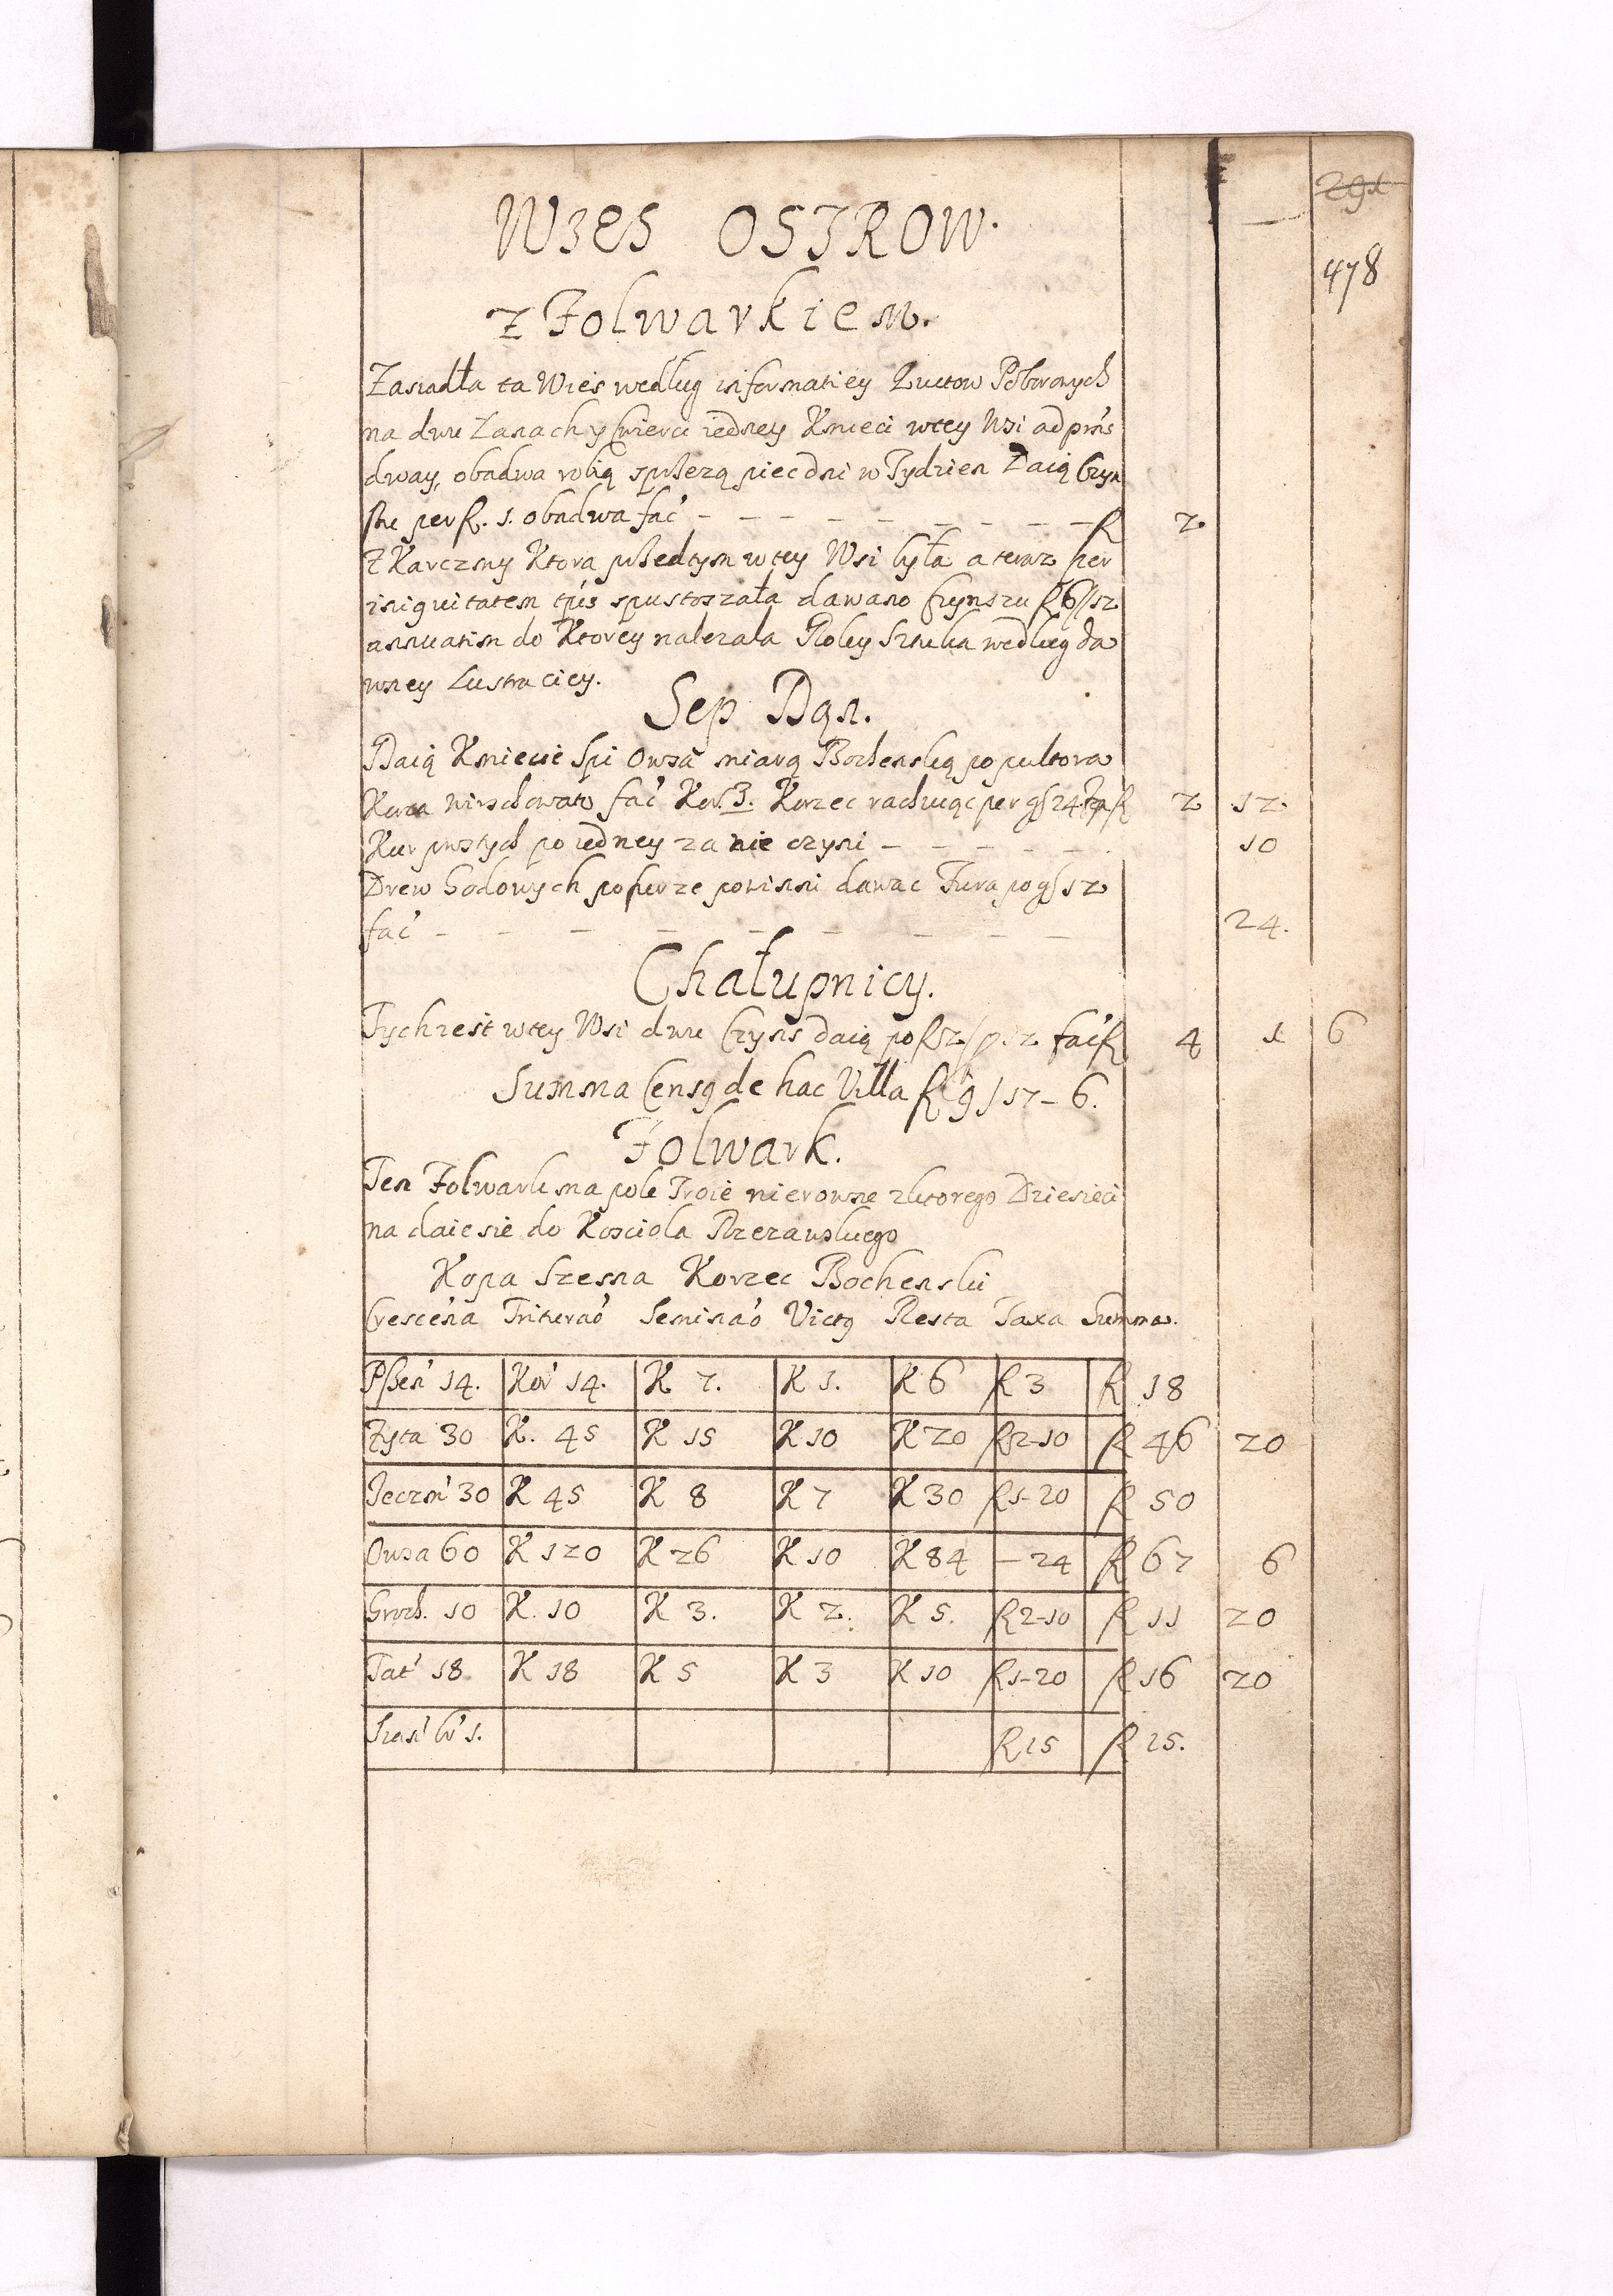 291
478
WIES OSTROW.
z Folwarkiem.
Zasiadła ta Wieś według informatiey Kwitow Poborowych
na dwu Łanach y Cwierci iedney Kmieci wtey Wsi ad pñs
dway, obadwa robią spuszczą piec dni w Tydzien Daią Czyn
szu per f. 1. obadwa fać – – – – – – – – – f 2.
Z Karczmy Ktora przedtym wtey Wsi była a teraz per
iniquitatem tp̃is spustoszała dawano Czynszu f 6// 12
annuatim do Ktorey nalezała Roley Sztuka według da
wney Lustraciey.
Sep Dąn.
Daią Kmiecie Spi Owsa miarą Bochenską po pułtora
Korca wirzchowato fać Kor. 3. Korzec rachuiąc per g 24 f 2 12.
Kur prostych po iedney za nie czyni – – – – – 10
Drew Godowych po furze powinni dawac Fura po g 12
fać – – – – – – – – – 24.
Chałupnicy.
Tych iest wtey Wsi dwu Czyns daią po f 2/ fać f 4 1 6
Summa Censq de hac Villa f 9 / 17 – 6.
Folwark.
Ten Folwark ma pole Troie nierowne zktorego Dziesieci
na daie sie do Kosciola Rzezawskiego
Kopa Szesna Korzec Bochenski
Crescen̄a Trituraō Seminaō Victq Resta Taxa Summa.
Pszeń 14. Kor 14. K 7. K 1. K 6 f 3 f 18
Zyta 30 K. 45 K 15 K 10 K 20 f 2-10 f 46 20
Jeczm̃ 30 K 45 K 8 K 7 K 30 f 1-20 f 50
Owsa 60 K 120 K 26 K 10 K 84 – 24 f 67 6
Groch. 10 K. 10 K 3. K 2. K 5. f 2-10 f 11 20
Tat' 18 K 18 K 5 K 3 K 10 f 1-20 f 16 20
Sian' 1. f 15 f 15.